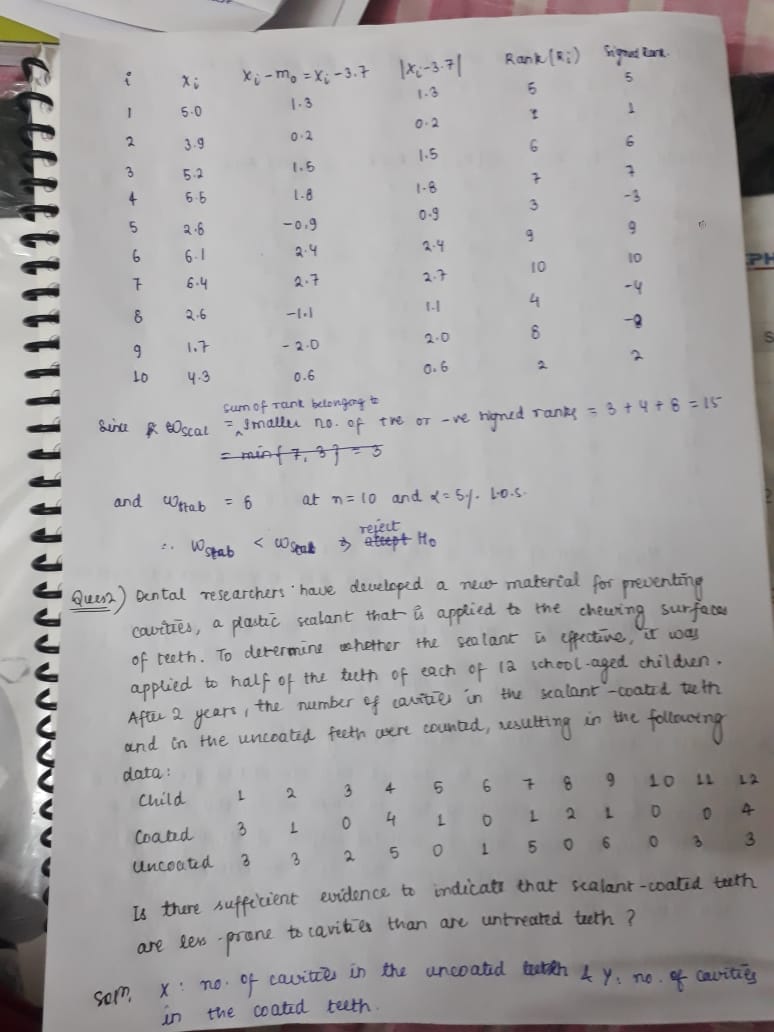 i xi xi-m0 = xi-3.7 |xi-3.7| Rank(Ri) Signed Rank.
1 5.0 1.3 1.3 5 5
2 3.9 0.2 0.2 1 1
3 5.2 1.5 1.5 6 6
4 5.5 1.8 1.8 7 7
5 2.8 -0.9 0.9 3 -3
6 6.1 2.4 2.4 9 9
7 6.4 2.7 2.7 10 10
8 2.6 -1.1 1.1 4 -4
9 1.7 -2.0 2.0 8 -8
10 4.3 0.6 0.6 2 2
sum of rank belonging to
Since Wscal = smaller no. of +ve or -ve signed ranks = 3+4+8 = 15
= min{7, 3} = 3
and Wstab = 8 at n=10 and α=5%. L.O.S.
reject
∴ Wstab < Wscal ⇒ accept H0
Ques2) Dental researchers have developed a new material for preventing
cavities, a plastic sealant that is applied to the chewing surfaces
of teeth. To determine whether the sealant is effective, it was
applied to half of the teeth of each of 12 school-aged children.
After 2 years, the number of cavities in the sealant-coated teeth
and in the uncoated teeth were counted, resulting in the following
data:
Child 1 2 3 4 5 6 7 8 9 10 11 12
Coated 3 1 0 4 1 0 1 2 1 0 0 4
Uncoated 3 3 2 5 0 1 5 0 6 0 3 3
Is there sufficient evidence to indicate that sealant-coated teeth
are less-prone to cavities than are untreated teeth?
Soln. X: no. of cavities in the uncoated teeth & Y: no. of cavities
in the coated teeth.
PH